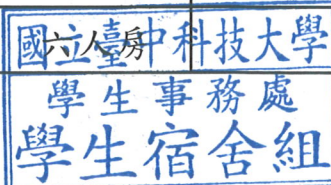 國立臺中科技大學
六人房
學生事務處
學生宿舍組